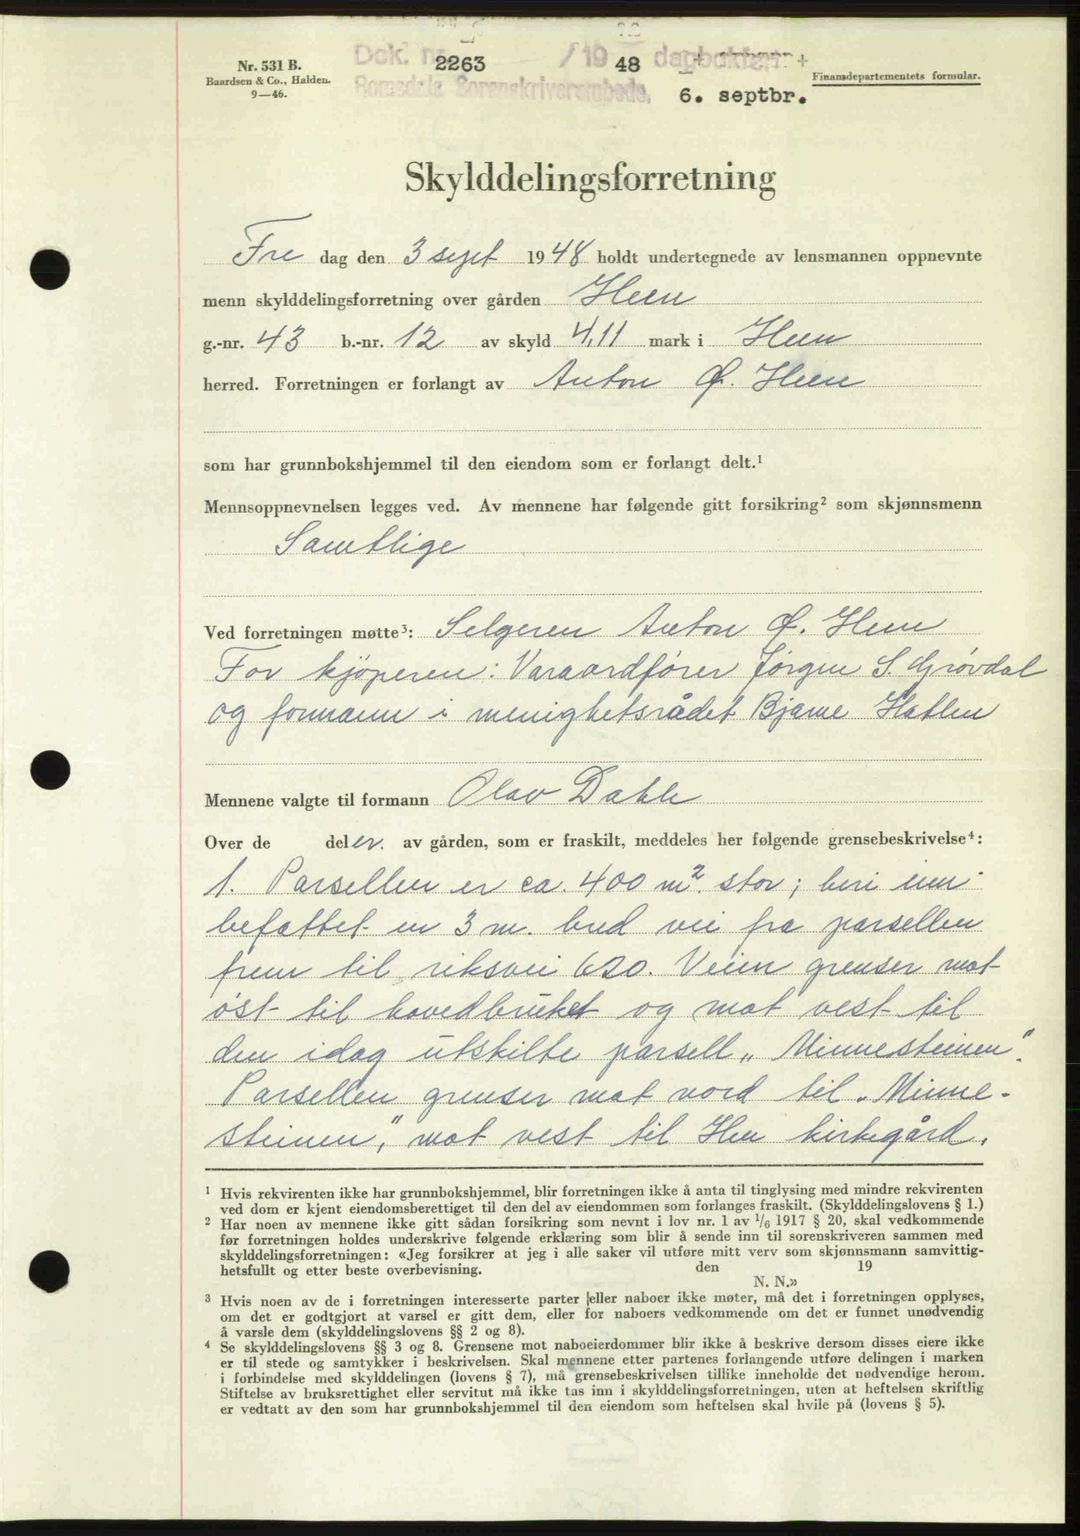 Nr. 531 B.
Baardsen & Co., Halden.
9—46.
Dok. nr. 2263 /19 48 dagboken
Romsdals Sorenskriverembede. 6. septbr.
Finansdepartementets formular.
Skylddelingsforretning
Fre dag den 3 sept 1948 holdt undertegnede av lensmannen oppnevnte
menn skylddelingsforretning over gården Heen
g.-nr. 43 b.-nr. 12 av skyld 4,11 mark i Heen
herred. Forretningen er forlangt av Anton Ø. Heen
som har grunnbokshjemmel til den eiendom som er forlangt delt.¹
Mennsoppnevnelsen legges ved. Av mennene har følgende gitt forsikring² som skjønnsmenn
Samtlige
Ved forretningen møtte³: Selgeren Anton Ø. Heen
For kjøperen: Varaordfører Jørgen S. Grøvdal
og formann i menighetsrådet Bjarne Hatlen
Mennene valgte til formann Olav Dahle
Over de deler. av gården, som er fraskilt, meddeles her følgende grensebeskrivelse⁴:
1. Parsellen er ca. 400 m². stor; heri inn-
befattet en 3 m. bred vei fra parsellen
frem til riksvei 620. Veien grenser mot
øst til hovedbruket og mot vest til
den idag utskilte parsell „Minnesteinen".
Parsellen grenser mot nord til „Minne-
steinen", mot vest til Hen kirkegård,
¹ Hvis rekvirenten ikke har grunnbokshjemmel, blir forretningen ikke å anta til tinglysing med mindre rekvirenten
ved dom er kjent eiendomsberettiget til den del av eiendommen som forlanges fraskilt. (Skylddelingslovens § 1.)
² Har noen av mennene ikke gitt sådan forsikring som nevnt i lov nr. 1 av 1/6 1917 § 20, skal vedkommende
før forretningen holdes underskrive følgende erklæring som blir å sende inn til sorenskriveren sammen med
skylddelingsforretningen: «Jeg forsikrer at jeg i alle saker vil utføre mitt verv som skjønnsmann samvittig-
hetsfullt og etter beste overbevisning. den 19
N. N.»
³ Hvis noen av de i forretningen interesserte parter eller naboer ikke møter, må det i forretningen opplyses,
om det er godtgjort at varsel er gitt dem, eller for naboers vedkommende om det er funnet unødvendig
å varsle dem (skylddelingslovens §§ 2 og 8).
⁴ Se skylddelingslovens §§ 3 og 8. Grensene mot naboeierdommer blir ikke å beskrive dersom disses eiere ikke
er til stede og samtykker i beskrivelsen. Skal mennene etter partenes forlangende utføre delingen i marken
i forbindelse med skylddelingen (lovens § 7), må grensebeskrivelsen tillike inneholde det nødvendige herom.
Stiftelse av bruksrettighet eller servitut må ikke tas inn i skylddelingsforretningen, uten at heftelsen skriftlig
er vedtatt av den som har grunnbokshjemmel til den eiendom som heftelsen skal hvile på (lovens § 5).